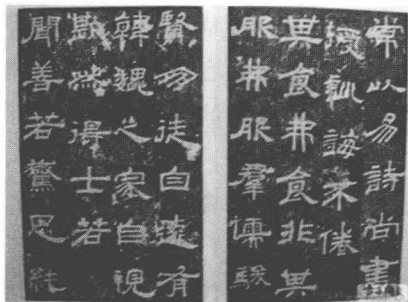 常以易詩尚書
授訓誨不倦
其食弗食非其
服弗服羣儒駿
賢朋徒自遠有
韓魏之家自視
然得士若
聞善若驚思純